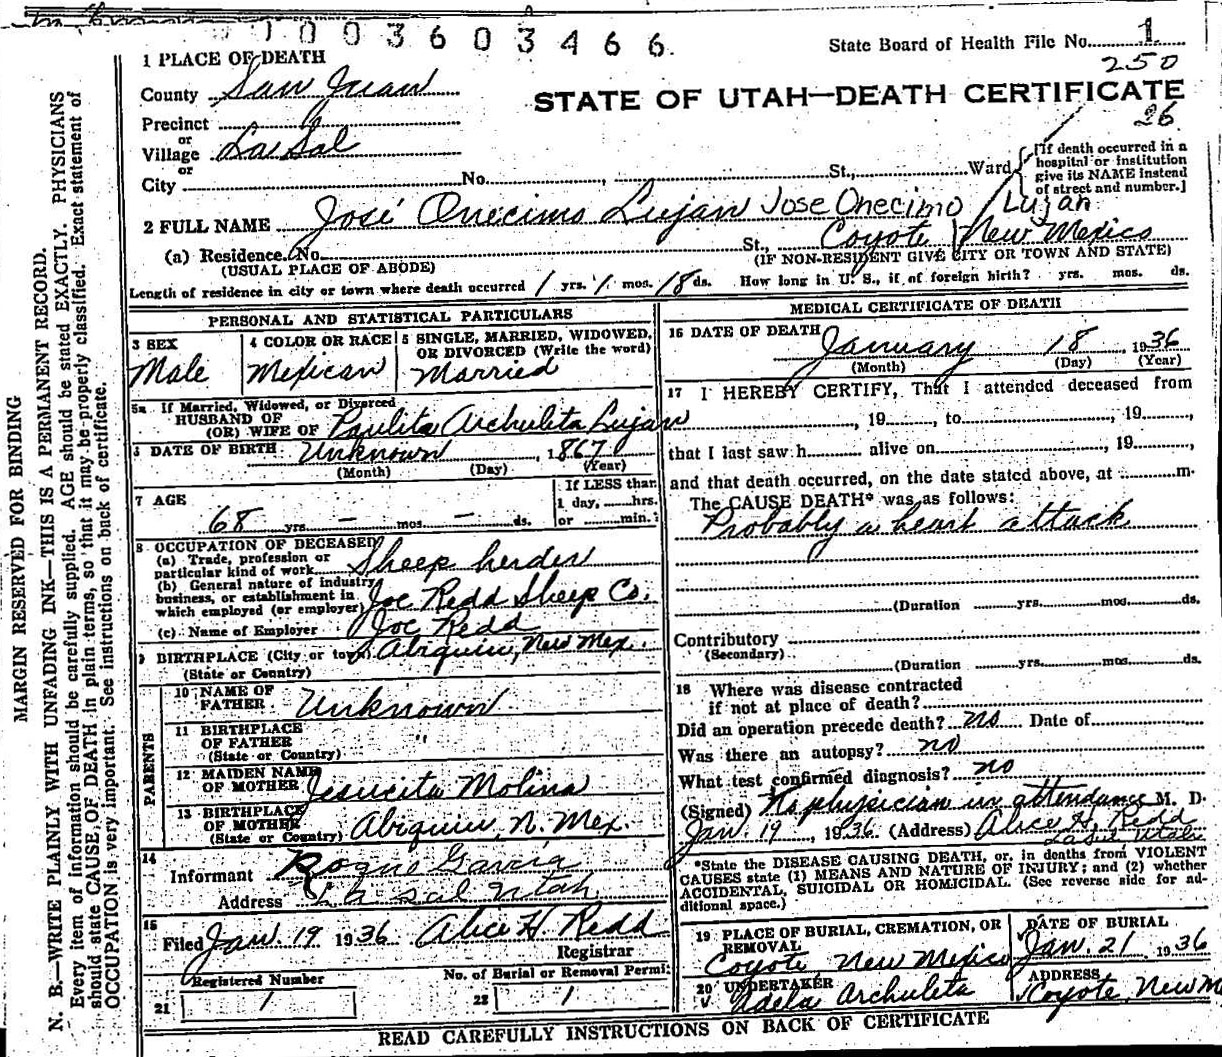 1003603466.
State Board of Health File No. 1
250
1 PLACE OF DEATH
County San Juan
STATE OF UTAH—DEATH CERTIFICATE
26
Precinct
or
Village La Sal
or
City No. , St., Ward
[If death occurred in a
hospital or institution
give its NAME instead
of street and number.]
2 FULL NAME José Onecimo Lujan Jose Onecimo Lujan
(a) Residence. No. St., Coyote New Mexico
(USUAL PLACE OF ABODE) (IF NON-RESIDENT GIVE CITY OR TOWN AND STATE)
Length of residence in city or town where death occurred 1 yrs. 1 mos. 18 ds. How long in U. S., if of foreign birth? yrs. mos. ds.
PERSONAL AND STATISTICAL PARTICULARS
3 SEX
Male
4 COLOR OR RACE
Mexican
5 SINGLE, MARRIED, WIDOWED,
OR DIVORCED (Write the word)
Married
5a If Married, Widowed, or Divorced
HUSBAND OF
(OR) WIFE OF Paulita Archuleta Lujan
6 DATE OF BIRTH Unknown , 1867
(Month) (Day) (Year)
7 AGE
68 yrs. — mos. — ds.
If LESS than
1 day, hrs.
or min.
8 OCCUPATION OF DECEASED
(a) Trade, profession or
particular kind of work Sheep herder
(b) General nature of industry
business, or establishment in
which employed (or employer) Joe Redd Sheep Co.
(c) Name of Employer Joe Redd
9 BIRTHPLACE (City or town) Abiquiu, New Mex.
(State or Country)
PARENTS
10 NAME OF
FATHER Unknown
11 BIRTHPLACE
OF FATHER "
(State or Country)
12 MAIDEN NAME
OF MOTHER Jesucita Molina
13 BIRTHPLACE
OF MOTHER
(State or Country) Abiquiu, N. Mex.
14
Informant Roque Garcia
Address La Sal Utah
15
Filed Jan. 19 1936 Alice H. Redd
Registrar
Registered Number
21 1
No. of Burial or Removal Permit
22 1
MEDICAL CERTIFICATE OF DEATH
16 DATE OF DEATH
January 18, 1936
(Month) (Day) (Year)
17 I HEREBY CERTIFY, That I attended deceased from
, 19 , to , 19 ,
that I last saw h alive on , 19 ,
and that death occurred, on the date stated above, at m.
The CAUSE DEATH* was as follows:
Probably a heart attack
(Duration yrs. mos. ds.
Contributory
(Secondary)
(Duration yrs. mos. ds.
18 Where was disease contracted
if not at place of death?
Did an operation precede death? no Date of
Was there an autopsy? no
What test confirmed diagnosis? no
(Signed) No physician in attendance M. D.
Jan. 19, 1936. (Address) Alice H. Redd
La Sal Utah
*State the DISEASE CAUSING DEATH, or, in deaths from VIOLENT
CAUSES state (1) MEANS AND NATURE OF INJURY; and (2) whether
ACCIDENTAL, SUICIDAL OR HOMICIDAL. (See reverse side for ad-
ditional space.)
19 PLACE OF BURIAL, CREMATION, OR
REMOVAL
Coyote, New Mexico
DATE OF BURIAL
Jan. 21 1936
20 UNDERTAKER
Adela Archuleta
ADDRESS
Coyote, New M
READ CAREFULLY INSTRUCTIONS ON BACK OF CERTIFICATE
MARGIN RESERVED FOR BINDING
N. B.—WRITE PLAINLY WITH UNFADING INK—THIS IS A PERMANENT RECORD.
Every item of information should be carefully supplied. AGE should be stated EXACTLY. PHYSICIANS
should state CAUSE OF DEATH in plain terms, so that it may be properly classified. Exact statement of
OCCUPATION is very important. See instructions on back of certificate.